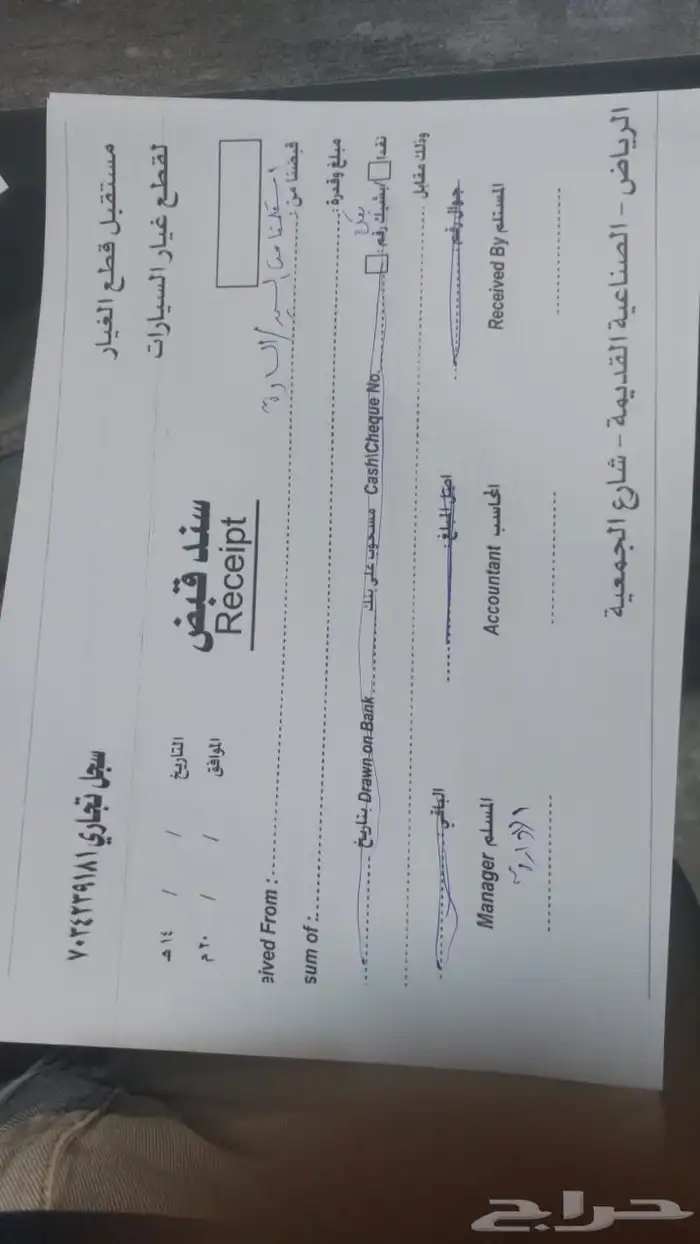 مستقبل قطع الغيار
لقطع غيار السيارات
سجل تجاري ٧٠٣٤٢٣٩١٨١
سند قبض
Receipt
التاريخ / / ١٤ هـ
الموافق / / ٢٠ م
قبضنا من: استلمنا من السيد/
eived From :
مبلغ وقدره:
sum of :
نقدا / بشيك رقم: Cash\Cheque No. مسحوب على بنك Drawn on Bank بتاريخ
وذلك مقابل
جوال رقم: اصل المبلغ: الباقي
المستلم Received By المحاسب Accountant المسلم Manager
الرياض - الصناعية القديمة - شارع الجمعية
حراج